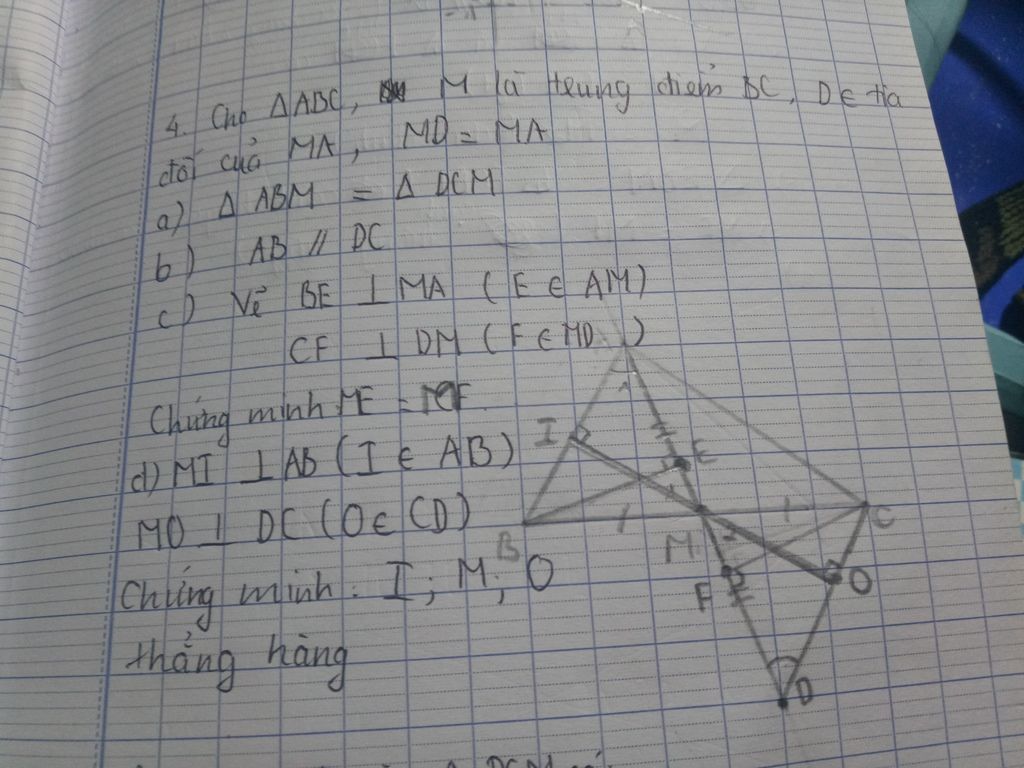 4. Cho ΔABC, M là trung điểm BC, D ∈ tia
đối của MA, MD = MA
a) Δ ABM = Δ DCM
b) AB // DC
c) Vẽ BE ⊥ MA ( E ∈ AM)
CF ⊥ DM ( F ∈ MD )
Chứng minh ME = MF
d) MI ⊥ AB ( I ∈ AB)
MO ⊥ DC (O ∈ CD)
Chứng minh : I ; M ; O
thẳng hàng
I
E
B
M
C
F
O
D